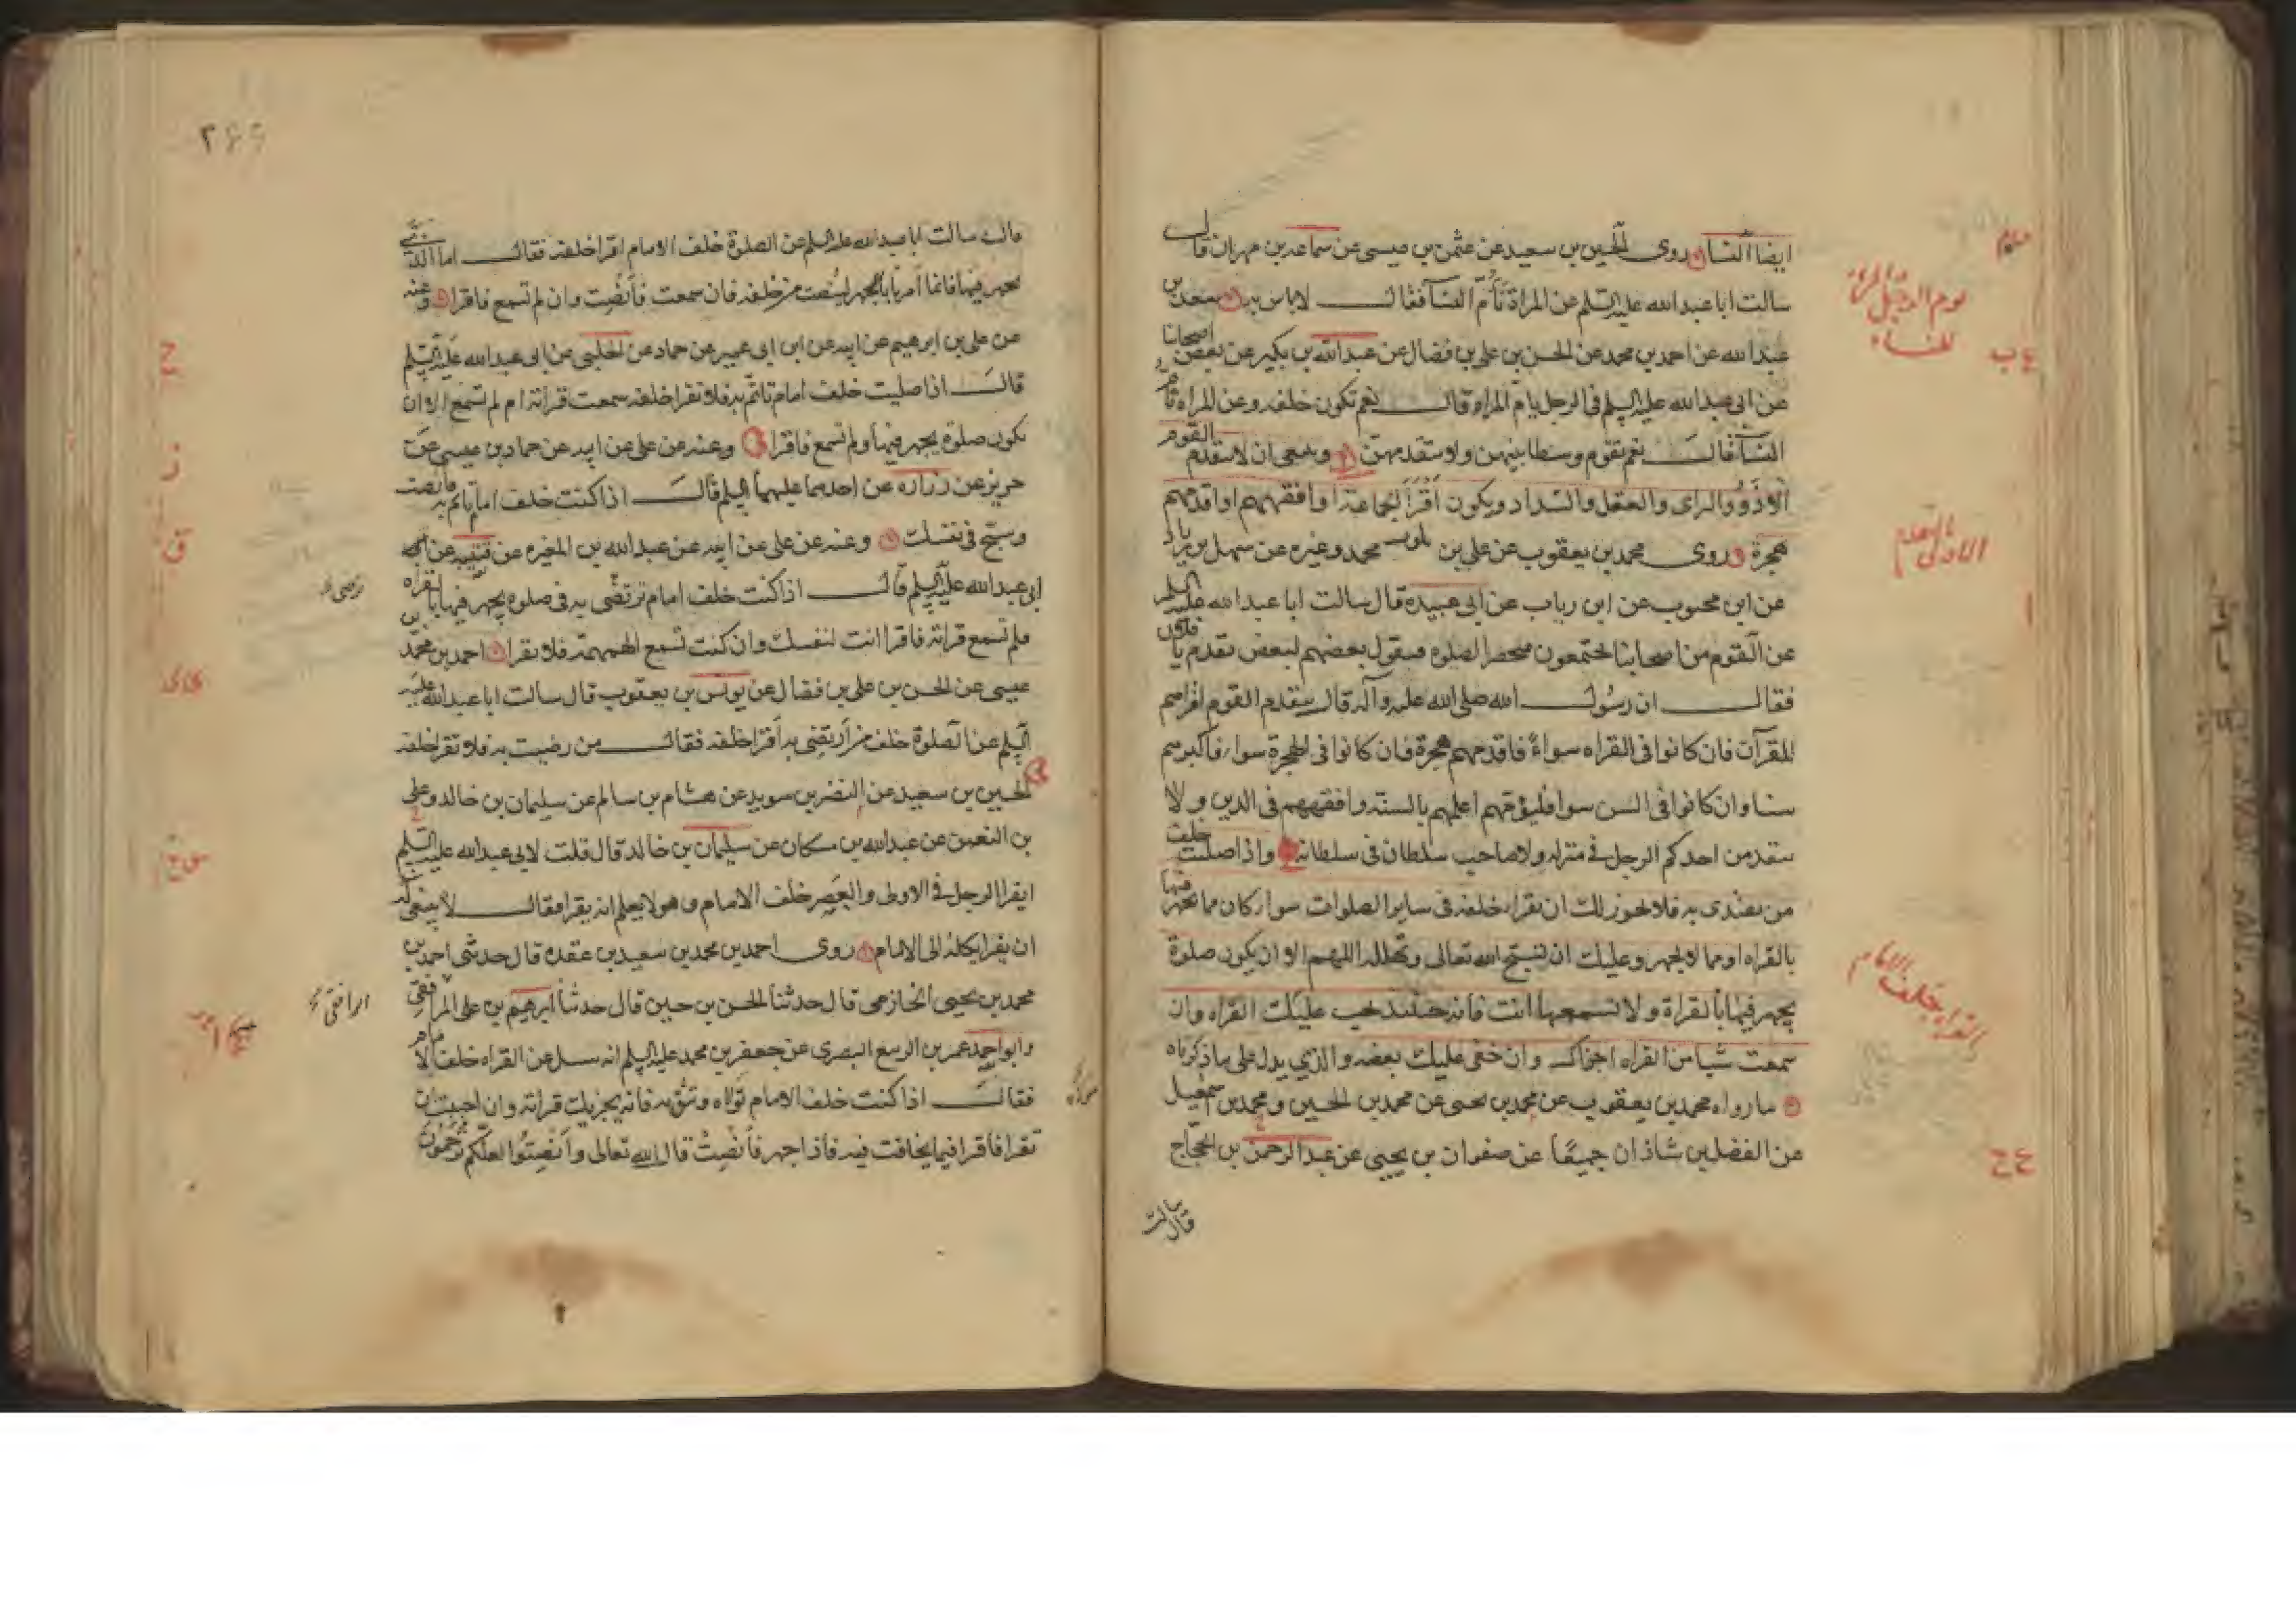 ايضا النسا روى الحسين بن سعيد عن عثمن بن عيسى عن سماعة بن مهران قال
سالت ابا عبد الله عليه السلم عن المراة تؤم النسا فقال لا باس به سعد بن
عبد الله عن احمد بن محمد عن الحسن بن على بن فضال عن عبد الله بن بكير عن بعض اصحابنا
عن ابى عبد الله عليه السلم فى الرجل يام المراه قال نعم تكون خلفه وعن المراه تام
النسا قال نعم تقوم وسطا بينهن ولا تتقدمهن وينبغى ان لا يتقدم القوم
الا ذوو الراى والعقل والسداد ويكون اقرا الجماعة او افقههم او اقدمهم
هجرة روى محمد بن يعقوب عن على بن محمد وغيره عن سهل بن زياد
عن ابن محبوب عن ابن رياب عن ابى عبيدة قال سالت ابا عبد الله عليه السلم
عن القوم من اصحابنا يجتمعون فتحضر الصلوه فيقول بعضهم لبعض تقدم يا فلان
فقال ان رسول الله صلى الله عليه وآله قال يتقدم القوم اقراهم
للقرآن فان كانوا فى القراه سواء فاقدمهم هجرة فان كانوا فى الهجرة سواء فاكبرهم
سنا وان كانوا فى السن سوا فليؤمهم اعلمهم بالسنة وافقههم فى الدين ولا
يتقدمن احدكم الرجل فى منزله ولا صاحب سلطان فى سلطانه واذا صليت خلف
من يقتدى به فلا يجوز لك ان تقرا خلفه فى ساير الصلوات سوا كان مما يجهر فيها
بالقراه او مما لا يجهر وعليك ان تسبح الله تعالى وتهلله اللهم الا ان يكون صلوة
يجهر فيها بالقراة ولا تسمعها انت فانه حينئذ يجب عليك القراه وان
سمعت شيا من القراه اجزاك وان خفى عليك بعضه والذي يدل على ما ذكرناه
ما رواه محمد بن يعقوب عن محمد بن يحيى عن محمد بن الحسين ومحمد بن اسمعيل
عن الفضل بن شاذان جميعا عن صفوان بن يحيى عن عبد الرحمن بن الحجاج
قال سالت
يوم الرجل المراة
للنساء
الاولى بالتقدم
القراءة خلف الامام
ع ح
قال سالت ابا عبد الله عليه السلم عن الصلوة خلف الامام اقرا خلفه فقال اما الذي
يجهر فيها فانما امرنا بالجهر لينصت من خلفه فان سمعت فانصت وان لم تسمع فاقرا وعنه
عن على بن ابرهيم عن ابيه عن ابن ابى عمير عن حماد عن الحلبى عن ابى عبد الله عليه السلم
قال اذا صليت خلف امام تاتم به فلا تقرا خلفه سمعت قراته ام لم تسمع الا ان
تكون صلوة يجهر فيها ولم تسمع فاقرا وعنه عن على عن ابيه عن حماد بن عيسى عن
حريز عن زراره عن احدهما عليهما السلم قال اذا كنت خلف امام تاتم به فانصت
وسبح فى نفسك وعنه عن على عن ابيه عن عبد الله بن المغيره عن قتيبه عن
ابى عبد الله عليه السلم قال اذا كنت خلف امام ترتضى به فى صلوه يجهر فيها بالقراه
فلم تسمع قراته فاقرا انت لنفسك وان كنت تسمع الهمهمة فلا تقرا احمد بن محمد بن
عيسى عن الحسن بن على بن فضال عن يونس بن يعقوب قال سالت ابا عبد الله عليه
السلم عن الصلوة خلف من ارتضى به اقرا خلفه فقال من رضيت به فلا تقرا خلفه
الحسين بن سعيد عن النضر بن سويد عن هشام بن سالم عن سليمان بن خالد وعلى
بن النعمن عن عبد الله بن مسكان عن سليمان بن خالد قال قلت لابى عبد الله عليه السلم
ايقرا الرجل فى الاولى والعصر خلف الامام وهو لا يعلم انه يقرا فقال لا ينبغى له
ان يقرا يكله الى الامام روى احمد بن محمد بن سعيد بن عقده قال حدثنى احمد بن
محمد بن يحيى الخازمى قال حدثنا الحسن بن حسين قال حدثنا ابرهيم بن على المرافقى
وابو احمد عمر بن الربيع البصرى عن جعفر بن محمد عليه السلم انه سئل عن القراه خلف الامام
فقال اذا كنت خلف الامام تولاه وتثق به فانه يجزيك قراته وان احببت ان
تقرا فاقرا فيما يخافت فيه فاذا جهر فانصت قال الله تعالى وانصتوا لعلكم ترحمون
الرافقى
ح
ز
ق